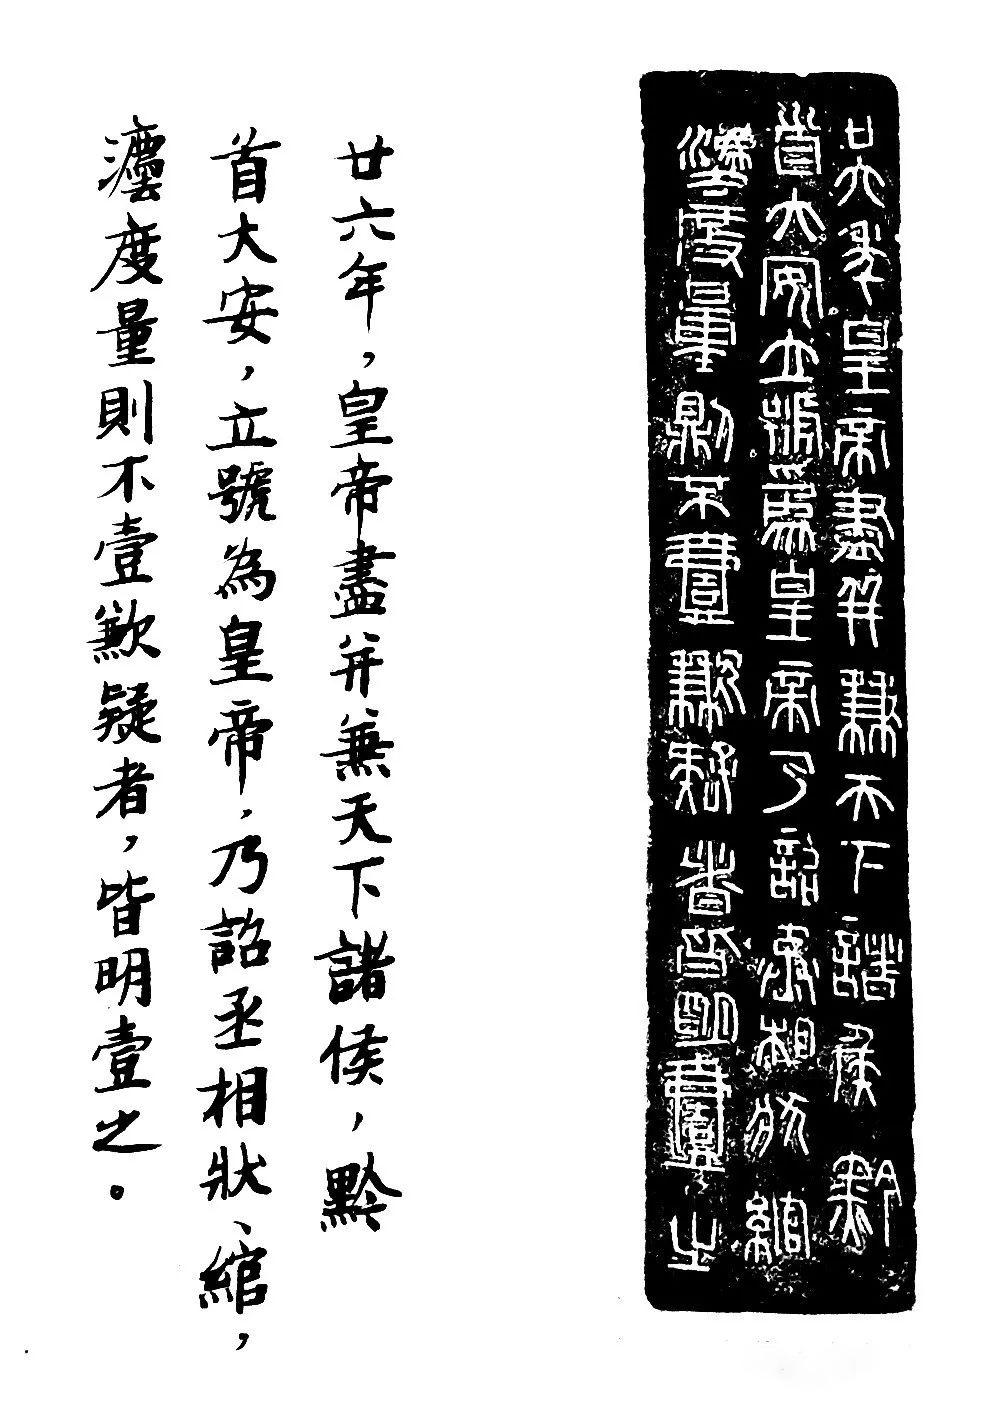 廿六年皇帝盡并兼天下諸侯黔
首大安立號為皇帝乃詔丞相狀綰
灋度量則不壹歉疑者皆明壹之
廿六年，皇帝盡并兼天下諸侯，黔
首大安，立號為皇帝，乃詔丞相狀、綰，
灋度量則不壹歉疑者，皆明壹之。